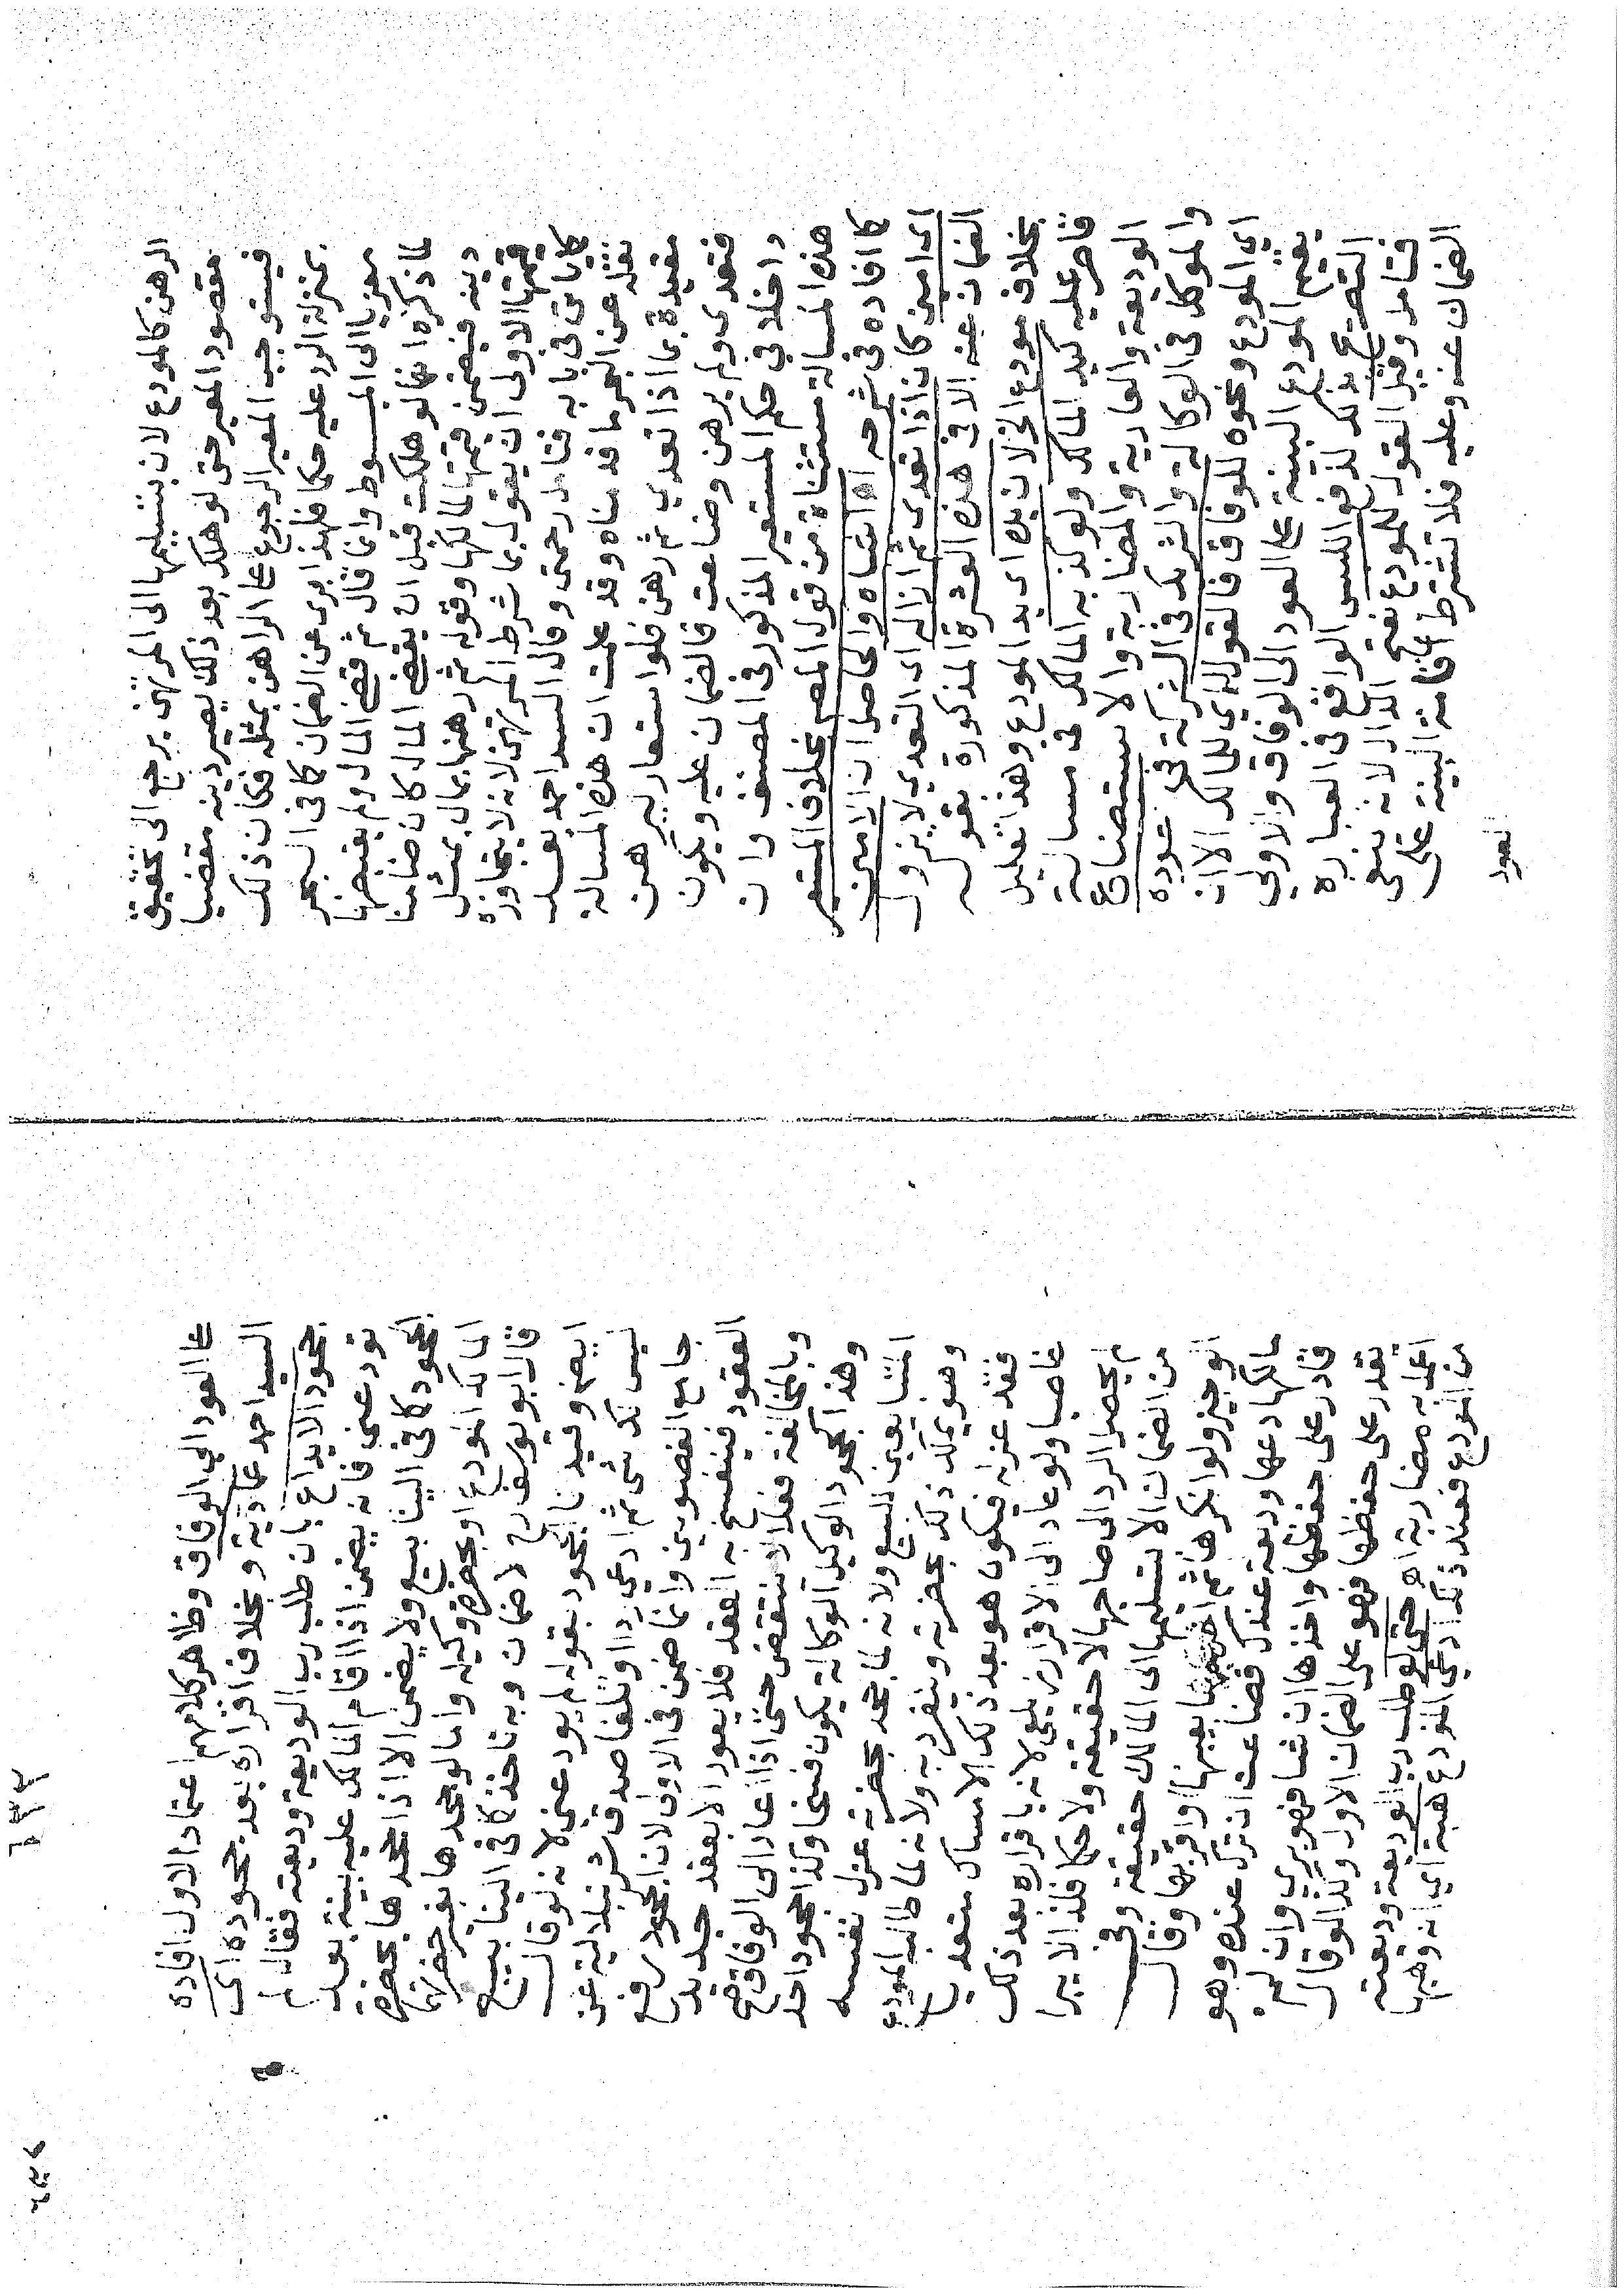 الرهن كالمودع لان بتسليمها الى المرتهن يرجع الى تحقيق
مقصود المعير حتى لو هلك بعد ذلك يصير دينه مقضيا
فيستوجب المعير الرجوع على الراهن بمثله فكان ذلك
بمنزلة الرد عليه حكما فلهذا برئ عن الضمان كما في البحر
معزيا الى المبسوط وانما قال ثم قضى المال ولم يقبضها
لما ذكره انها لو هلكت قبل ان يقضى المال كان ضامنا
دينه فيضمن قيمتها لمالكها وقوله ثم رهنها بمال بمثل
قيمتها الاولى ان يقول بما شرط المرتهن لانه لا يتجاوزه
كما ياتي في بابه فتامل رحمتي وقال السيد احمد بعد
نقله عن البحر ما قدمناه وقد علمت ان هذه المسالة
مقيدة بما اذا تعدي ثم رهن فلو استعار ليرهن
فتعدى ولم يرهن وضاعت فالضمان عليه ويكون
داخلا في حكم المستعير المذكور في المصنف وان
هذه المسالة مستثناة من قول المصم بخلاف المستعير
كما افاده في شرحه اه اشباه والحاصل ان الامين
اي امين كان اذا تعدى ثم ازاله اي التعدي لا يزول
الضمان عنه الا في هذه العشرة المذكورة بقوله
بخلاف مودع الخ لان يده اي يد المودع وهذا تعليل
قاصر عليه كيد المالك ولو كذبه المالك في مسالة
الوديعة والعارية والمضاربة والاستبضاع
والموكل في الوكالة والشريك في الشركة في عوده
اي المودع ونحوه للوفاق فالقول اي للمالك الا ان
يقيم المودع البينة على العود الى الوفاق والاولى
التصريح بذلك لدفع اللبس الواقع في العبارة
فتامل وقيل القول للمودع بفتح الدال لانه ينفى
الضمان عنه وعليه فلا تشترط اقامة البينة على
العود
على العود الى الوفاق وظاهر كلامهم اعتماد الاول افاده
السيد احمد عمادية وبخلاف اقراره بعد جحوده اى
جحود الايداع بان طلب رب الوديعة وديعته فقال لم
تودعني فانه يضمن اذا اقام المالك عليه بينة بعد
الجحود كما في الينابيع ولا يضمن الا اذا جحدها بحضرة
المالك المودع او بحضرة وكيله واما لو جحدها بغير حضرتهما
قال ابو يوسف رح لا ضمان وبه ناخذ كما في الينابيع
ايضا وقيدنا الجحود بقوله لم يودعني لانه لو قال
ليس لك شي ثم ادعى ردا او تلفا صدق شرنبلالية عن
جامع الفصولين وانما ضمن في الاول لان الجحود رفع
العقود فينفسخ به العقد فلا يعود الا بعقد جديد
وبالمخالفة فعلا لا ينتقض حتى اذا عاد الى الوفاق صح
وهذا كجحود الوكيل الوكالة يكون فسخا وكذا جحود احد
المتبايعين البيع ولانه لما جحد بحضرته عزل نفسه
وهو يملك ذلك بحضرته وينفرد به ولانه لما طالبه المودع
فقد عزله فيكون هو بعد ذلك الامساك متعديا
غاصبا ولو عاد الى الاقرار زيلعي لانه باقراره بعد ذلك
لم يحصل الرد الى صاحبها لا حقيقة ولا حكما فلذا لا يبرا
من الضمان الا بتسليمها الى المالك حقيقة وفي
الوجيز ولو انكرها ثم اخرجها بعينها واقر بها وقال
مالكها دعها وديعة عندك فضاعت ان ترك عنده وهو
قادر على حفظها واخذها ان شا فهو بري وان لم
يقدر على حفظها فهو على الضمان الاول وكذا لو قال
اعمل به مضاربة اه حتى لو طلب رب الوديعة وديعته
من المودع فعند ذلك ادعى المودع هبة اي انه وهبها